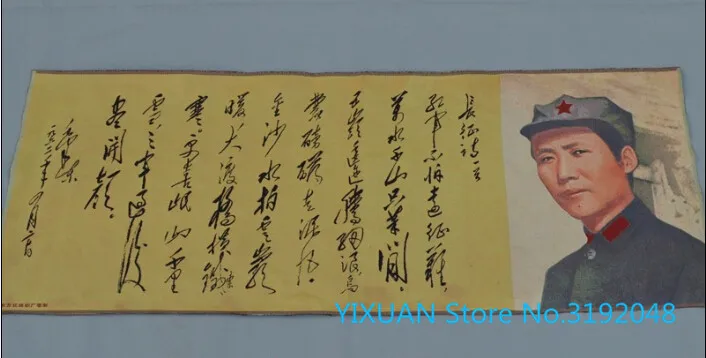 長征詩一首
紅軍不怕遠征難，
萬水千山只等閒。
五嶺逶迤騰細浪烏
蒙磅礴走泥丸。
金沙水拍雲崖
暖大渡橋橫鐵索
寒。更喜岷山千里
雪三軍過後
盡開顏。
毛澤東
YIXUAN Store No.3192048